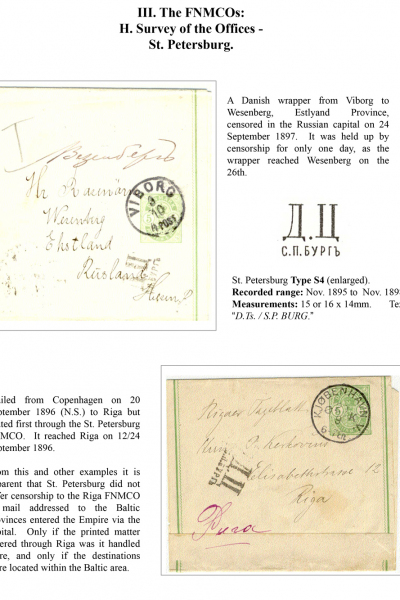 III. The FNMCOs:
H. Survey of the Offices -
St. Petersburg.
A Danish wrapper from Viborg to
Wesenberg, Estlyand Province,
censored in the Russian capital on 24
September 1897. It was held up by
censorship for only one day, as the
wrapper reached Wesenberg on the
26th.
Везенбергъ
Wesenberg
Ehstland
Rusland
VIBORG
Д.Ц
С.П.БУРГЪ
St. Petersburg Type S4 (enlarged).
Recorded range: Nov. 1895 to Nov. 189
Measurements: 15 or 16 x 14mm. Te
"D.Ts. / S.P. BURG."
iled from Copenhagen on 20
ptember 1896 (N.S.) to Riga but
ted first through the St. Petersburg
MCO. It reached Riga on 12/24
ptember 1896.
om this and other examples it is
parent that St. Petersburg did not
fer censorship to the Riga FNMCO
mail addressed to the Baltic
ovinces entered the Empire via the
ital. Only if the printed matter
ered through Riga was it handled
re, and only if the destinations
re located within the Baltic area.
KJØBENHAVN
Rigaer Tageblatt
Elisabethstrasse 12
Riga
Рига